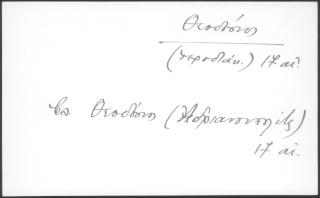 Θεοδόσιος
(ιεροδιάκ.) 17 αἰ.
Θεοδόσιος (Ἀδριανουπολίτης)
17 αἰ.